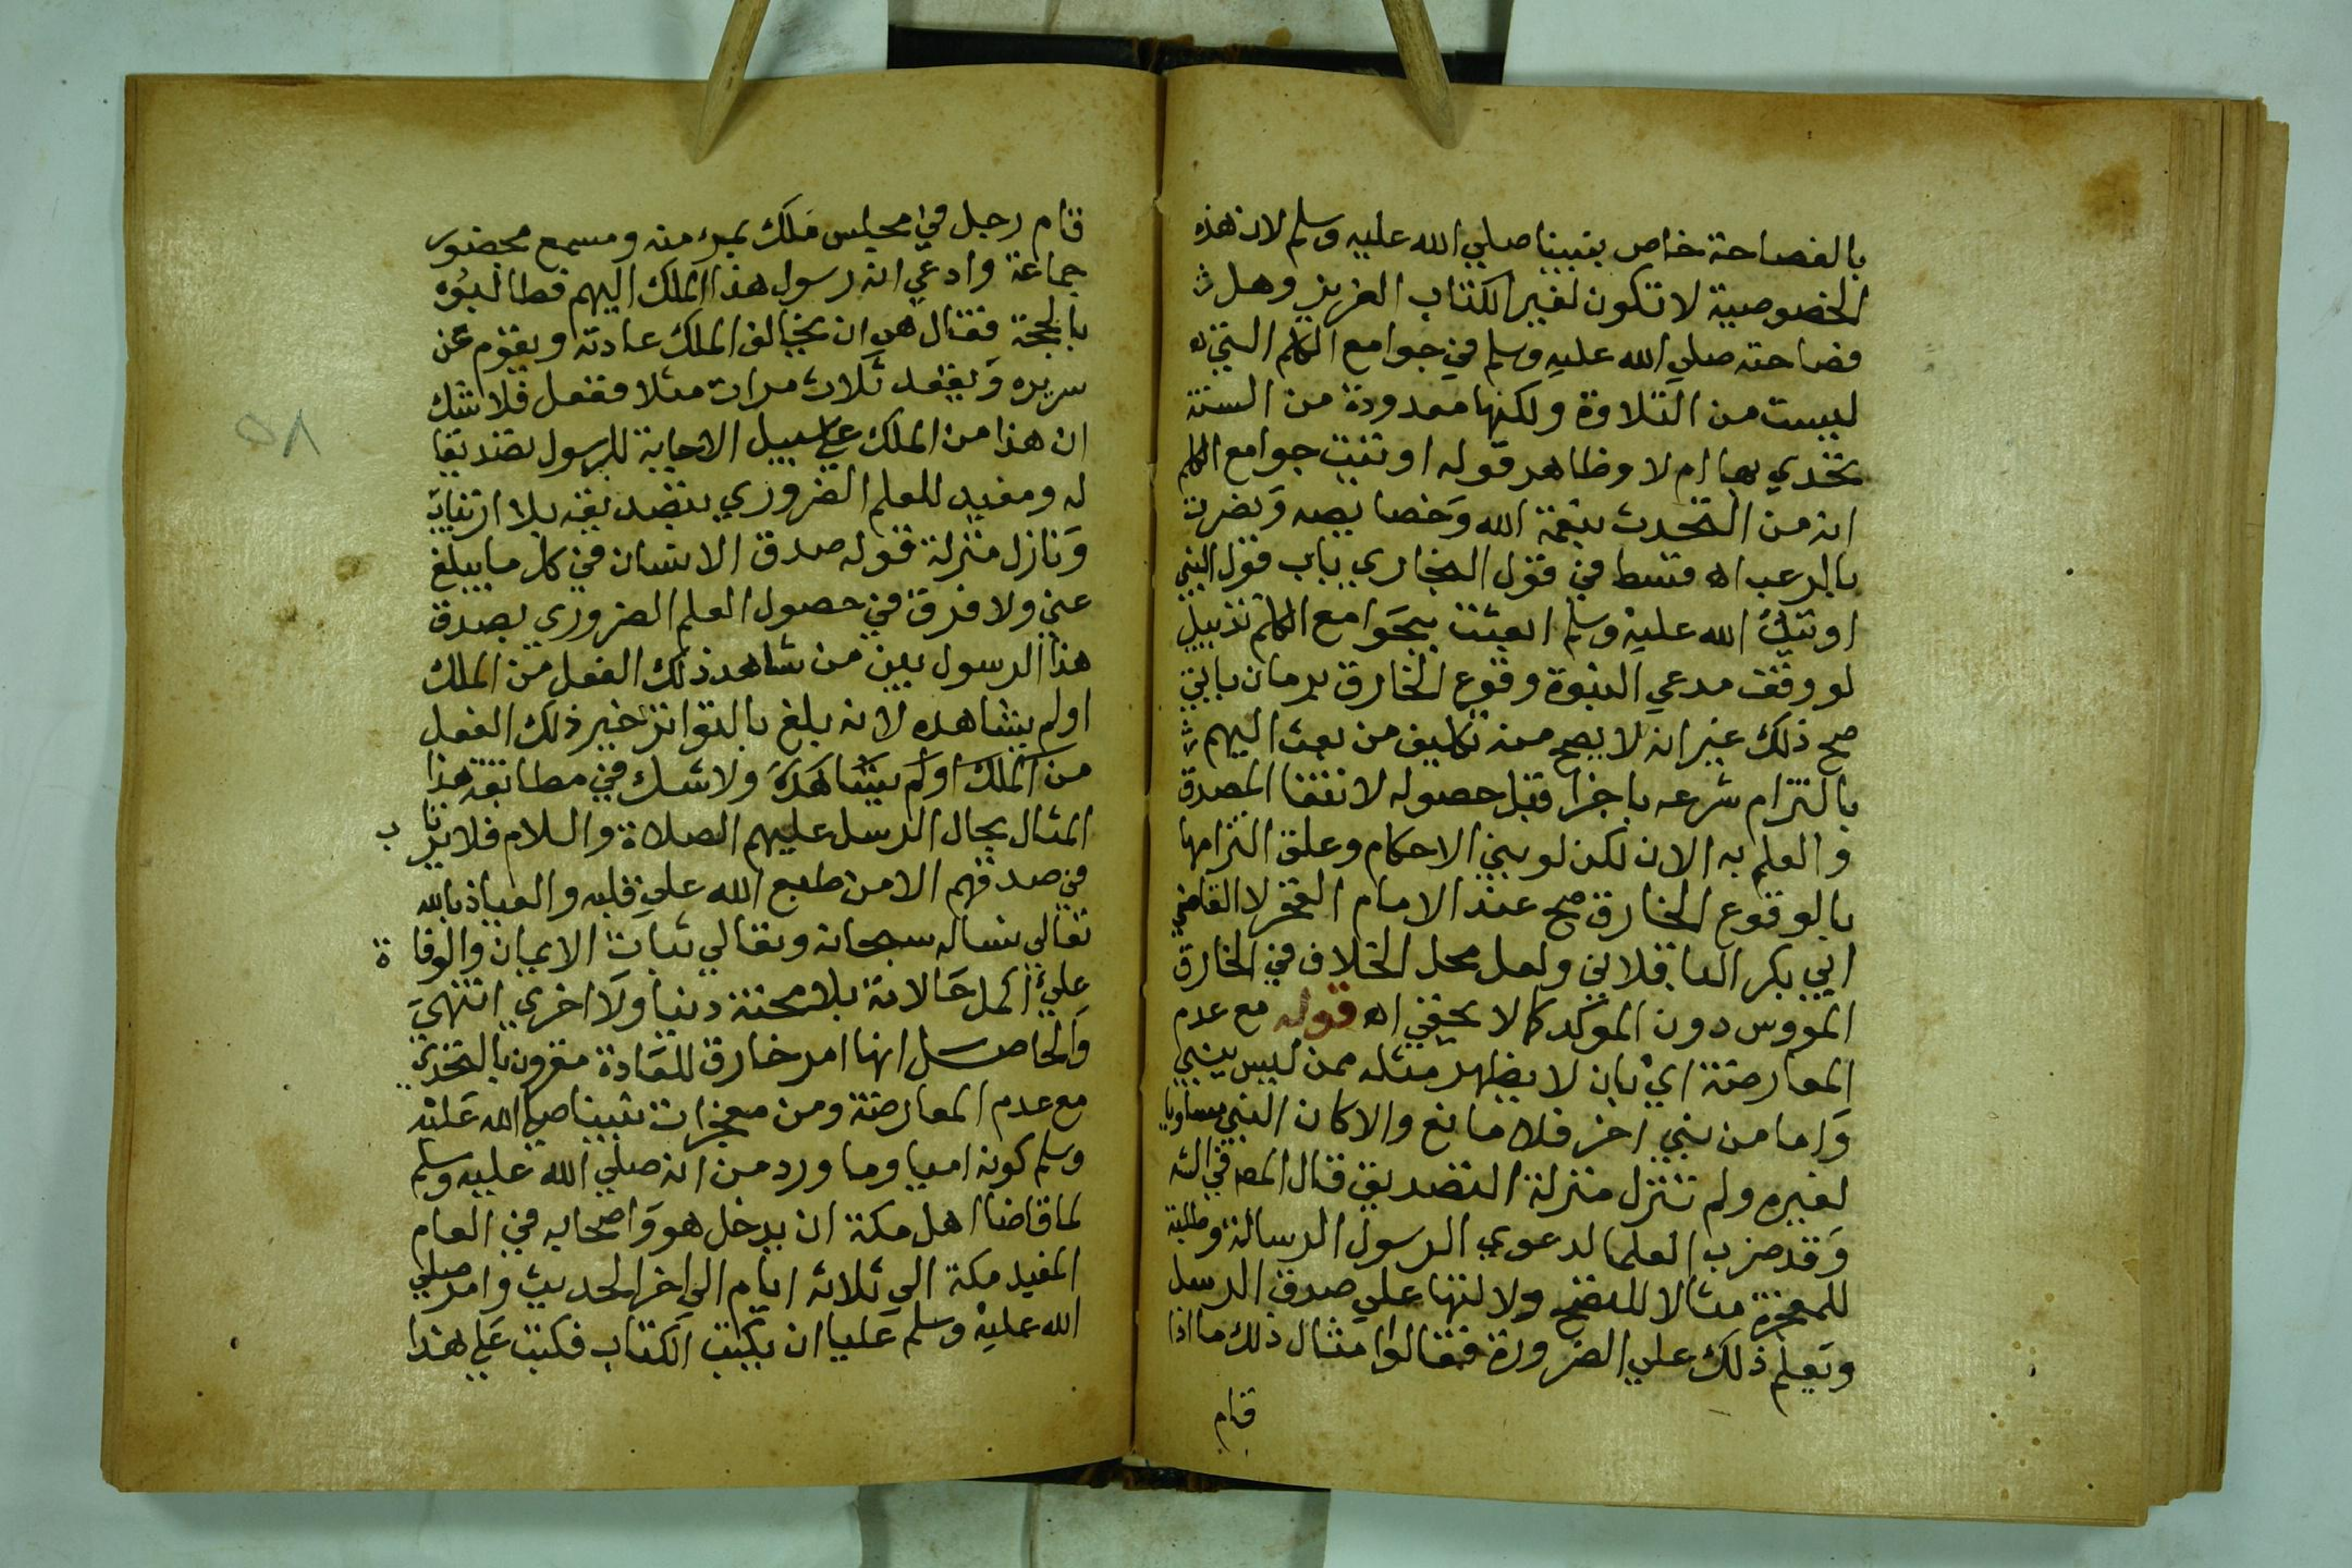 بالفصاحة خاص بنبينا صلي الله عليه وسلم لان هذه
الخصوصية لا تكون لغير الكتاب العزيز وهل
فصاحته صلي الله عليه وسلم في جوامع الكلم التي
ليست من التلاوة ولكنها معدودة من السنة
تحدي بها ام لا وظاهر قوله اوتيت جوامع الكلم
انه من التحدث بنعمة الله وخصايصه ونصرت
بالرعب اه قسط في قول البخاري باب قول النبي
الله عليه وسلم ابعثت بجوامع الكلم تذييل
لو وقف مدعي النبوة وقوع الخارق بزمان ياتي
صح ذلك غير انه لا يصح منه تكليف من بعث اليهم
بالتزام شرعه باجزا قبل حصوله لانتفا المصدق
والعلم به الان لكن لو بين الاحكام وعلق التزامها
بالوقوع الخارق صح عند الامام الفخر لا القاضي
ابي بكر الباقلاني ولعل محل الخلاف في الخارق
دون الموكد كما لا يخفي اه قوله مع عدم
المعارضة اي بان لا يظهر مثله ممن ليس بنبي
واما من نبي اخر فلا مانع والا كان النبي مساويا
لغيره ولم تنزل منزلة التصديق قال المص في
وقد ضرب العلما لدعوي الرسول الرسالة وطلبه
للمعجزة مثالا للتضح ولالتها علي صدق الرسل
ويعلم ذلك علي الضرورة فقالوا مثال ذلك ما اذا
قام
قام رجل في مجلس ملك بمرء منه ومسمع بحضور
جماعة وادعي انه رسول هذا الملك اليهم فطالبوه
بالحجة فقال هي ان يخالف الملك عادته ويقوم عن
سريره ويقعد ثلاث مرات مثلا ففعل فلا شك
ان هذا من الملك علي سبيل الاجابة للرسول تصديقا
له ومفيد للعلم الضروري بتصديقه بلا ارتياب
ونازل منزلة قوله صدق الانسان في كل ما يبلغ
عني ولا فرق في حصول العلم الضروري بصدق
هذا الرسول بين من شاهد ذلك الفعل من الملك
اولم يشاهده لانه بلغ بالتواتر خبر ذلك الفعل
من الملك اولم يشاهده ولا شك في مطابقة هذا
المثال بحال الرسل عليهم الصلاة والسلام فلا يرتاب
في صدقهم الا من طبع الله علي قلبه والعياذ بالله
تعالي نساله سبحانه وتعالي ثبات الايمان والوفاة
علي اكمل حالاته بلا محنة دنيا ولا اخري انتهي
والحاصل انها امر خارق للعادة مقرون بالتحدي
مع عدم المعارضة ومن معجزات نبينا صلي الله عليه
وسلم كونه اميا وما ورد من انه صلي الله عليه وسلم
لما قاضا اهل مكة ان يدخل هو واصحابه في العام
مكة الي ثلاثه ايام الي اخر الحديث وامر صلي
الله عليه وسلم عليا ان يكتب الكتاب فكتب علي هذا
٥٨